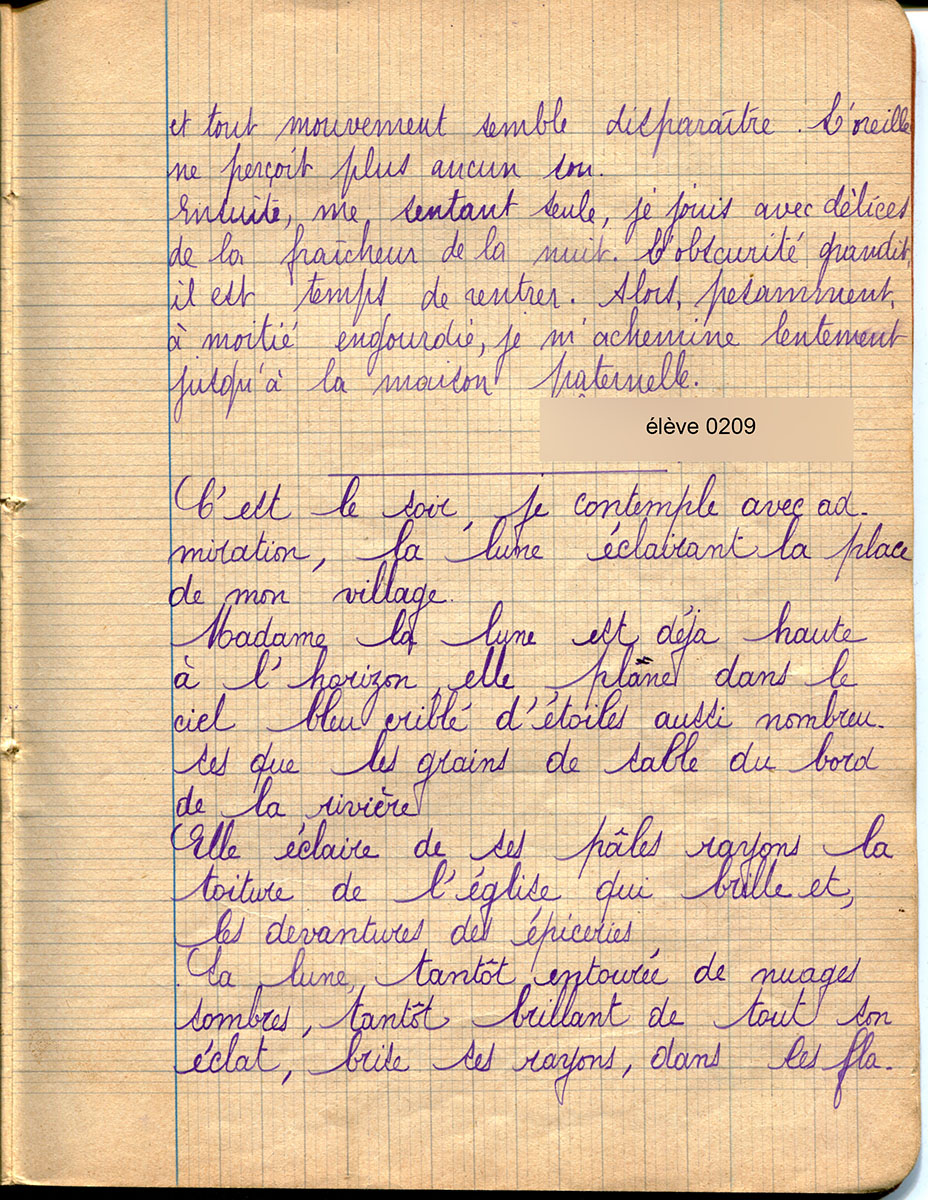 et tout mouvement semble disparaître. L'oreille
ne perçoit plus aucun son.
Ensuite, me sentant seule, je jouis avec délices
de la fraîcheur de la nuit. L'obscurité grandit,
il est temps de rentrer. Alors, pesamment,
à moitié engourdie, je m'achemine lentement
jusqu'à la maison paternelle.
élève 0209
C'est le soir, je contemple avec ad-
miration, la lune éclairant la place
de mon village.
Madame la lune est déja haute
à l'horizon, elle plane dans le
ciel bleu criblé d'étoiles aussi nombreu-
ses que les grains de sable du bord
de la rivière
Elle éclaire de ses pâles rayons la
toiture de l'église qui brille et,
les devantures des épiceries
La lune, tantôt entourée de nuages
sombres, tantôt brillant de tout son
éclat, brise ses rayons, dans les fla-